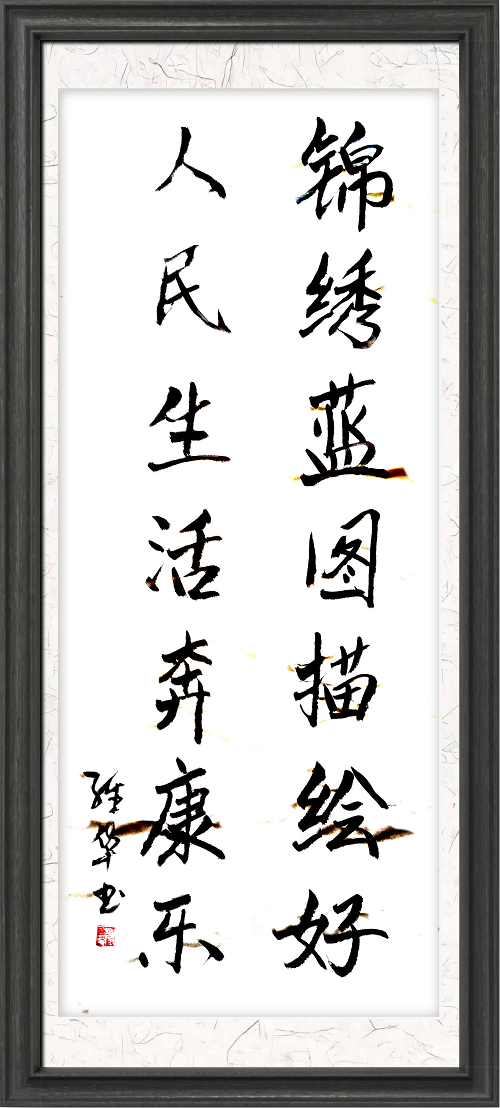 锦绣蓝图描绘好
人民生活奔康乐
维华书